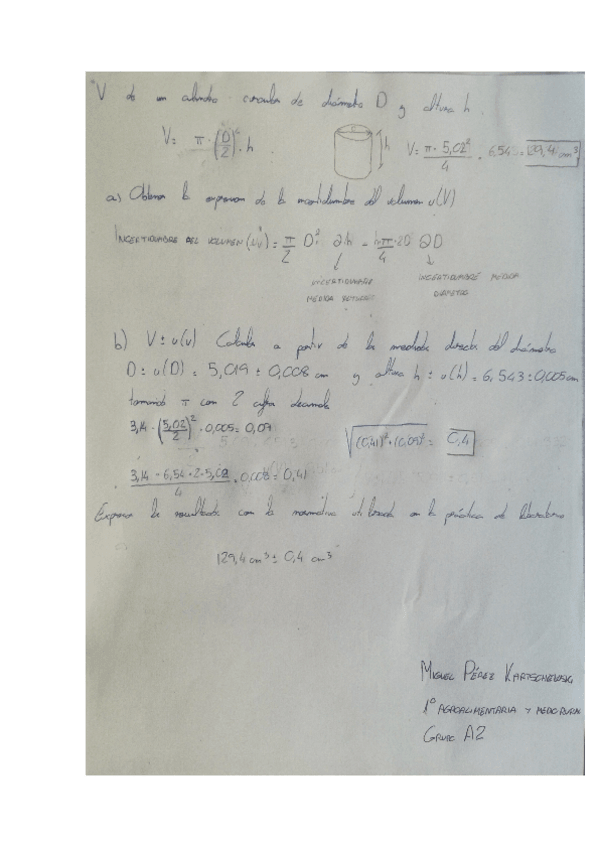 V de un cilindro circular de diámetro D y altura h.
V= π · (D/2)² · h
h
V= π · 5,02² / 4 · 6,54 = 129,41 cm³
a) Obtener la expresión de la incertidumbre del volumen u(V)
INCERTIDUMBRE DEL VOLUMEN = π/2 D² ∂h = hπ·2D/4 ∂D
INCERTIDUMBRE MEDIDA
INCERTIDUMBRE MEDIDA DIÁMETRO
b) V ± u(v) Calcula a partir de la medida directa del diámetro
D ± u(D) = 5,019 ± 0,008 cm y altura h ± u(h) = 6,543 ± 0,005 cm
tomando π con 2 cifras decimales
3,14 · (5,02/2)² · 0,005 = 0,09
√(0,41)² + (0,09)² = 0,4
3,14 · 6,54 · 2 · 5,02 / 4 · 0,008 = 0,41
Expresa los resultados con la normativa utilizada en la práctica de laboratorio
129,4 cm³ ± 0,4 cm³
MIGUEL PÉREZ
1º AGROALIMENTARIA Y MEDIO RURAL
GRUPO A2